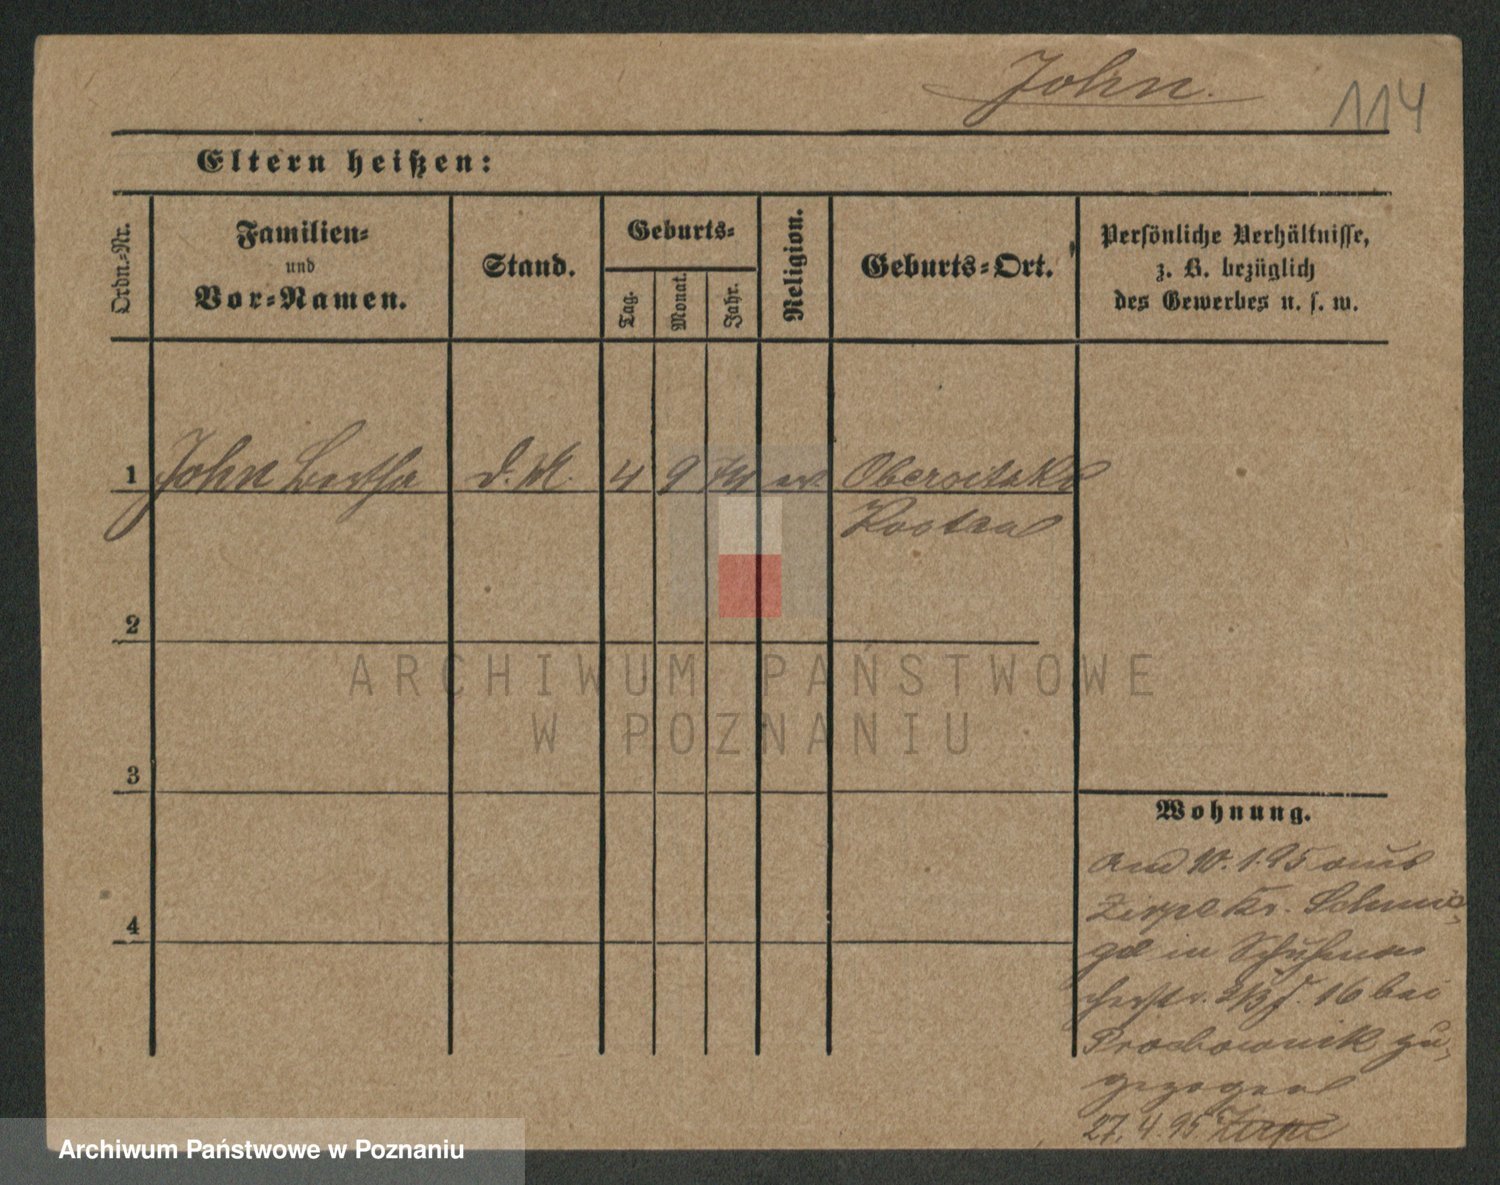 John.
114
Eltern heißen:
Ordn.-Nr.
Familien-
und
Vor-Namen.
Stand.
Geburts-
Tag.
Monat.
Jahr.
Religion.
Geburts-Ort.
Persönliche Verhältnisse,
z. B. bezüglich
des Gewerbes u. s. w.
1 John Bertha d. M. 4 9 ev. Obersitzko
2
3
4
ARCHIWUM PAŃSTWOWE
W POZNANIU
Wohnung.
Am 10.1.95 aus
Kr. Schmie-
gel in Schuhma-
cherstr. 16 bei
Prochownik zu-
gezogen
27.4.95
Archiwum Państwowe w Poznaniu